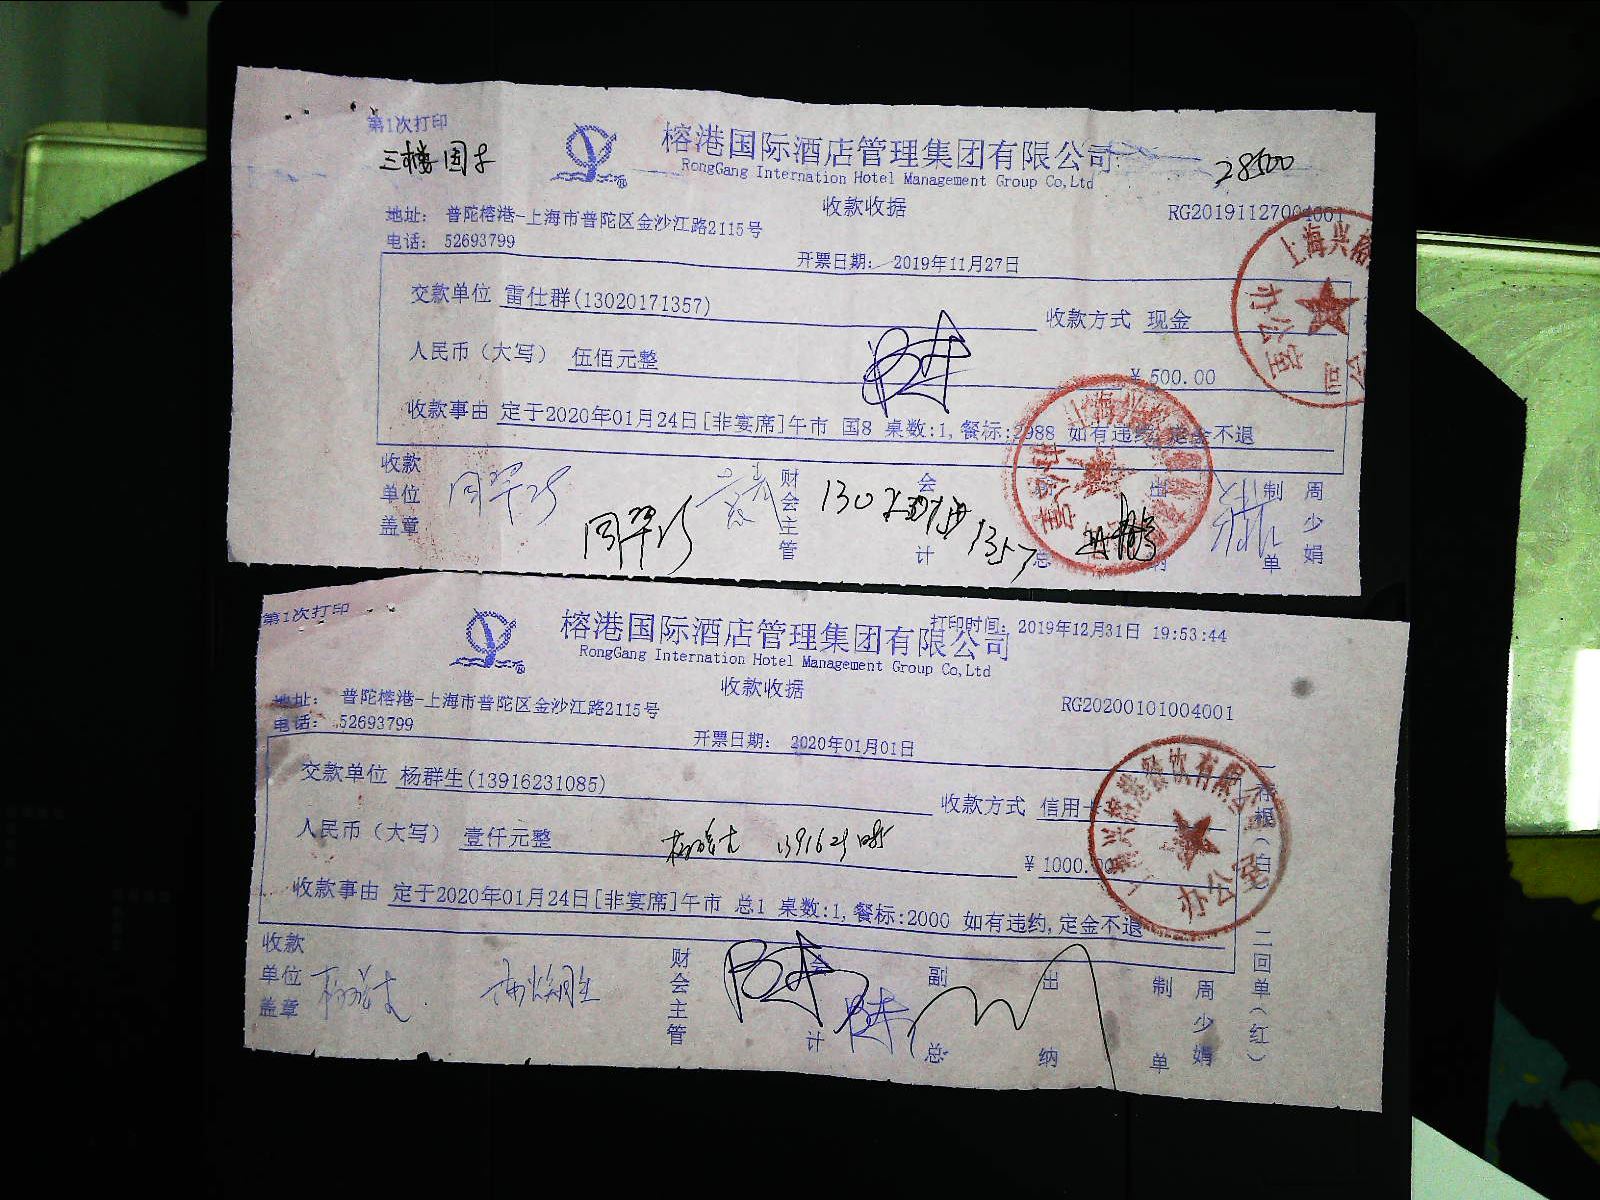 第1次打印
榕港国际酒店管理集团有限公司
28500
RongGang Internation Hotel Management Group Co,Ltd
收款收据
RG20191127004001
地址： 普陀榕港-上海市普陀区金沙江路2115号
电话： 52693799
开票日期： 2019年11月27日
交款单位 雷仕群(13020171357)
收款方式 现金
人民币（大写） 伍佰元整
¥ 500.00
收款事由 定于2020年01月24日[非宴席]午市 国8 桌数:1,餐标:2988 如有违约,定金不退
收款单位盖章
财会主管
会计
副总
出纳
制单
周少娟
办公室
第1次打印
榕港国际酒店管理集团有限公司
打印时间： 2019年12月31日 19:53:44
RongGang Internation Hotel Management Group Co,Ltd
收款收据
RG20200101004001
地址： 普陀榕港-上海市普陀区金沙江路2115号
电话： 52693799
开票日期： 2020年01月01日
交款单位 杨群生(13916231085)
收款方式 信用卡
人民币（大写） 壹仟元整
¥ 1000.00
收款事由 定于2020年01月24日[非宴席]午市 总1 桌数:1,餐标:2000 如有违约,定金不退
收款单位盖章
财会主管
会计
副总
出纳
制单
周少娟
二回单(红)
办公室